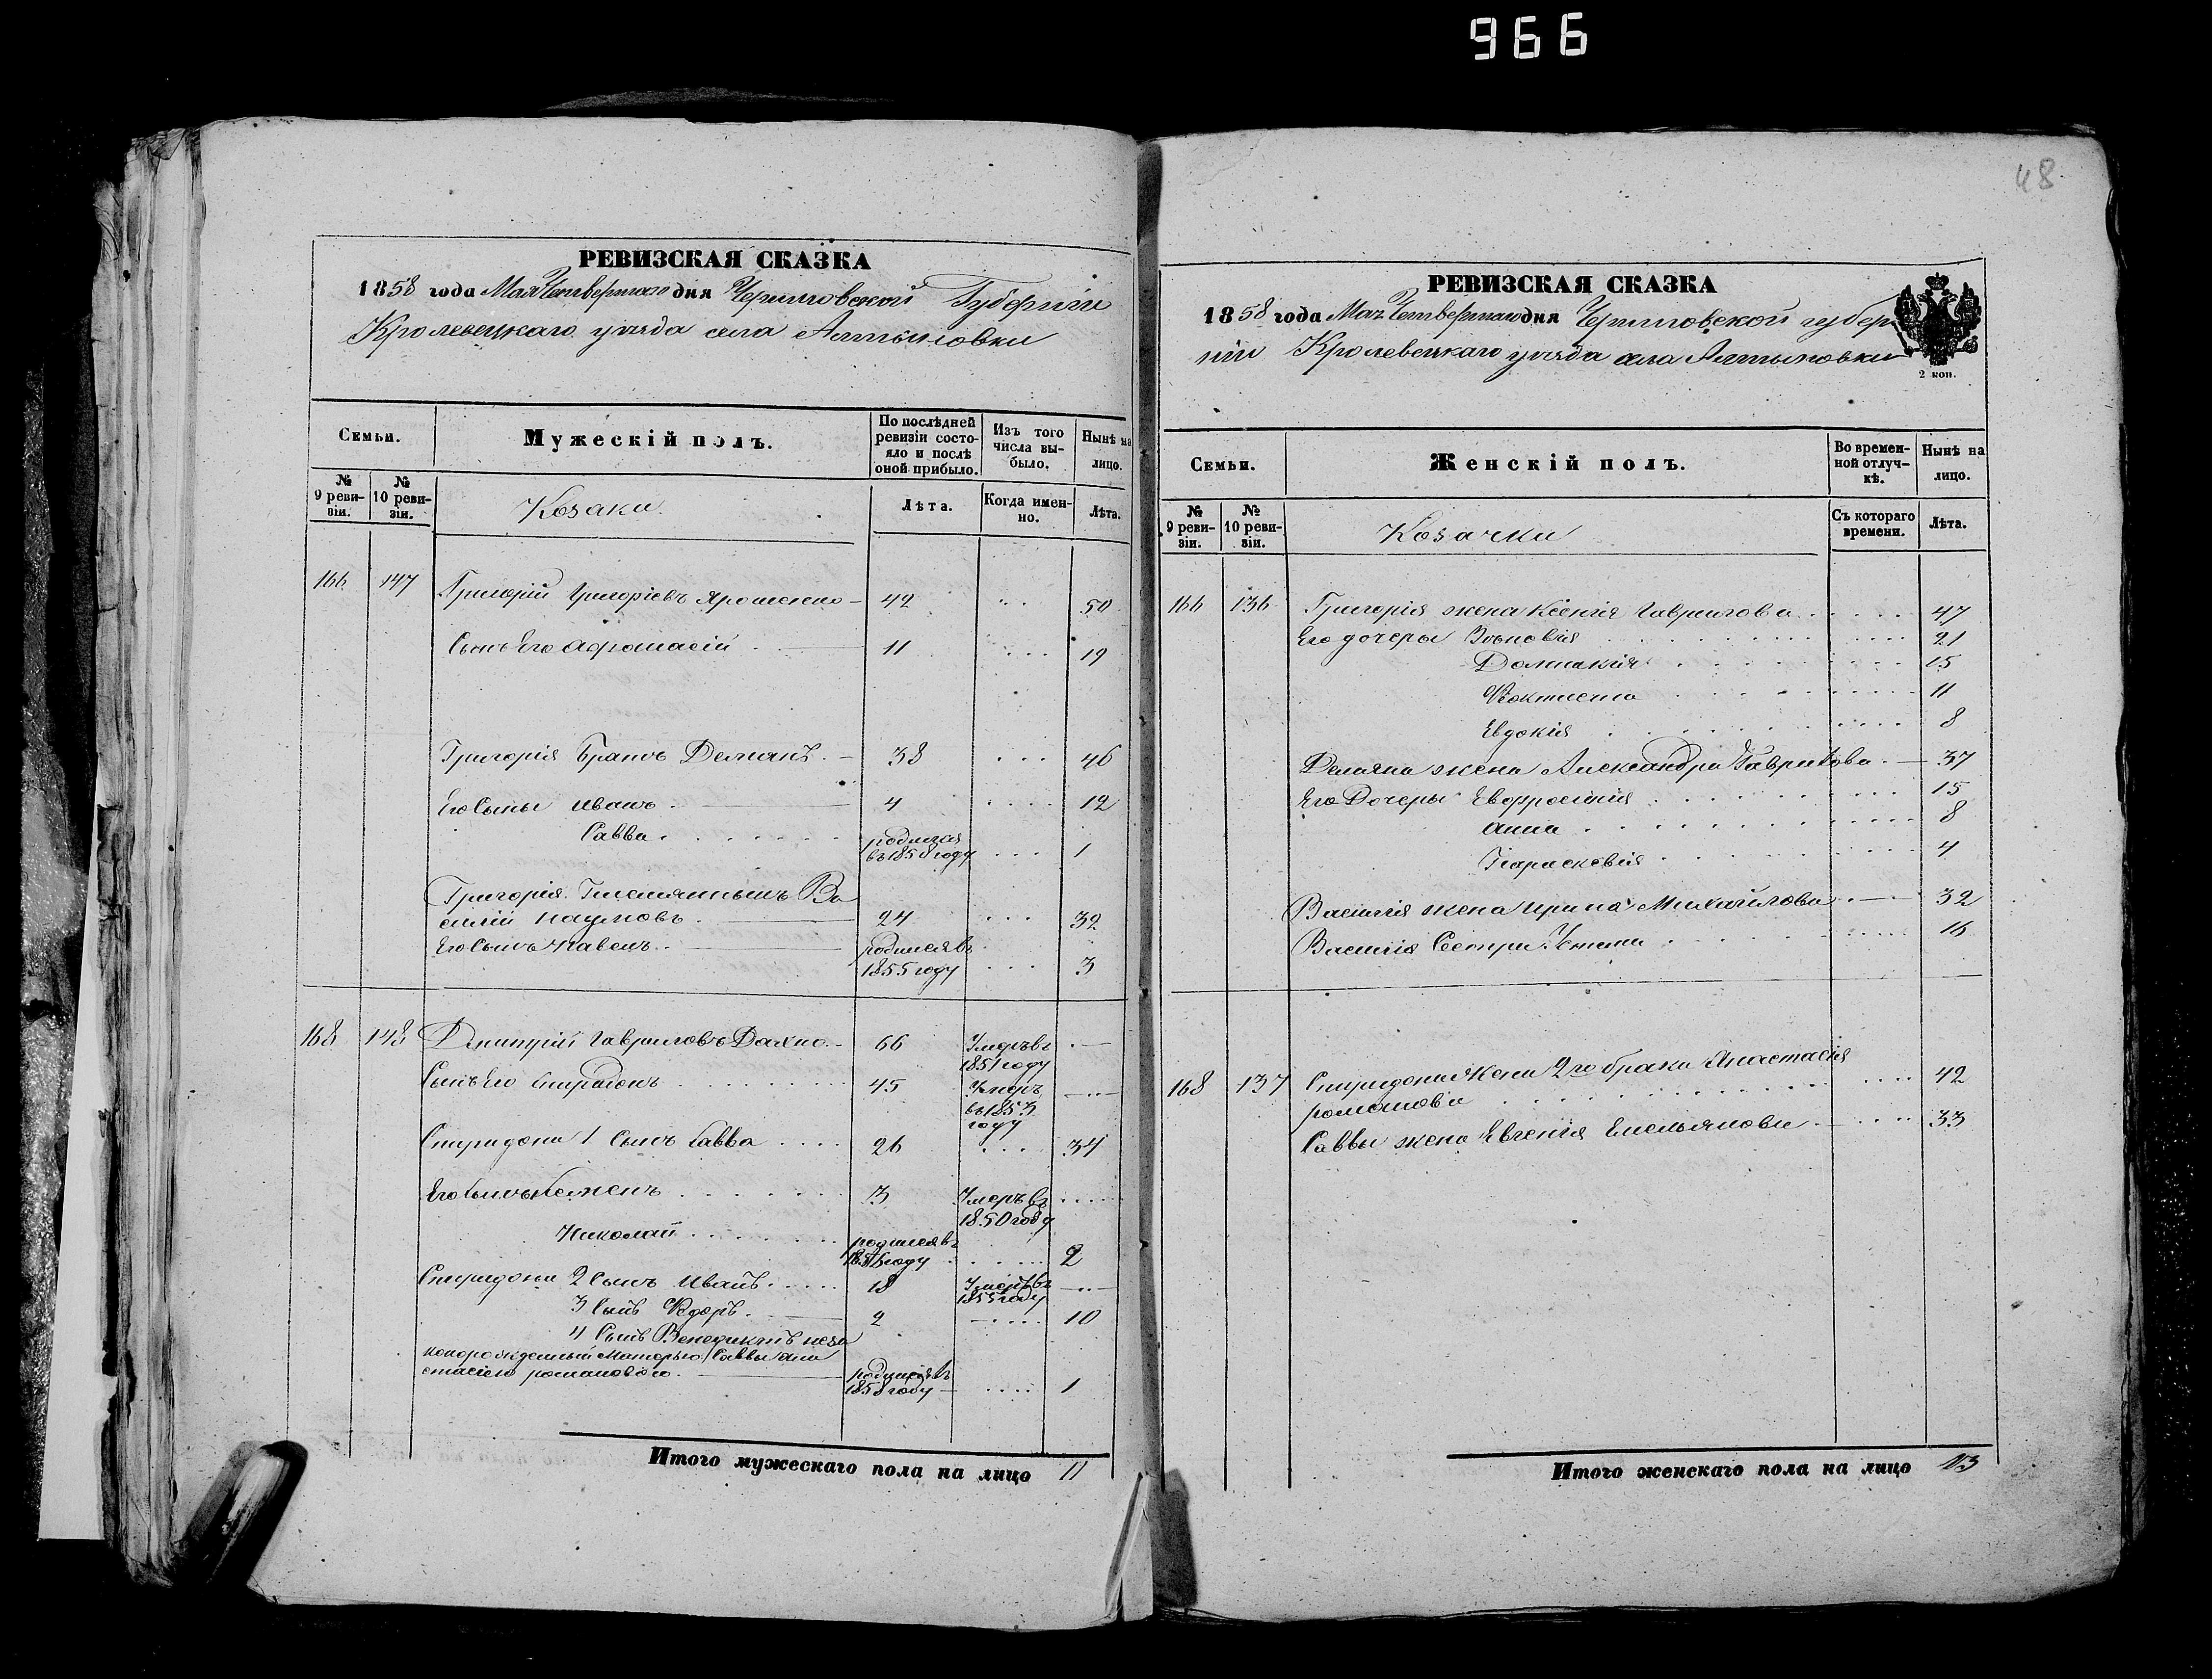 966
48
РЕВИЗСКАЯ СКАЗКА
1858 года Мая Четвертого дня Черниговской Губернии
Кролевецкаго уезда села Алтыновки
Семьи. Мужескій полъ. По послѣдней ревизіи состояло и послѣ оной прибыло. Изъ того числа выбыло. Нынѣ на лицо.
№ 9 ревизіи. № 10 ревизіи. Козаки. Лѣта. Когда именно. Лѣта.
166 147 Григорій Григоріевъ Ярошенко 42 50
Сынъ Его Афонасій 11 19
Григорія Братъ Демянъ 38 46
Его Сыны Иванъ 4 12
Савва родился въ 1858 году 1
Григорія Племянныкъ Ва
силій Наумовъ 24 32
Его Сынъ Павелъ родился въ 1855 году 3
168 148 Дмитрій Гавриловъ Дахно 66 Умеръ въ 1851 году
Сынъ Его Спиридонъ 45 Умеръ въ 1853 году
Спиридона 1 Сынъ Савва 26 34
Его Сынъ Семенъ 3 Умеръ въ 1850 году
Николай родился въ 1856 году 2
Спиридона 2 Сынъ Иванъ 18 Умеръ въ 1855 году
3 Сынъ Федоръ 2 10
4 Сынъ Венедиктъ неза
коннорожденный Матерью Саввы Ана
стасіею романовою родился въ 1858 году 1
Итого мужескаго пола на лицо 11
РЕВИЗСКАЯ СКАЗКА
1858 года Мая Четвертого дня Черниговской губер
ніи Кролевецкаго уезда села Алтыновки
2 коп.
Семьи. Женскій полъ. Во временной отлучкѣ. Нынѣ на лицо.
№ 9 ревизіи. № 10 ревизіи. Козачки Съ котораго времени. Лѣта.
166 136 Григорія жена Ксенія Гаврилова 47
Его дочеры Зѣновія 21
Домнакія 15
Фоктиста 11
Евдокія 8
Демяна жена Александра Гаврилова 37
Его Дочеры Евфросинія 15
Анна 8
Парасковія 4
Василія жена Ирина Михайлова 32
Василія Сестра 16
168 137 Спиридона Жена 2го брака Анастасія
романова 42
Саввы жена Евгенія Емельянова 33
Итого женскаго пола на лицо 13